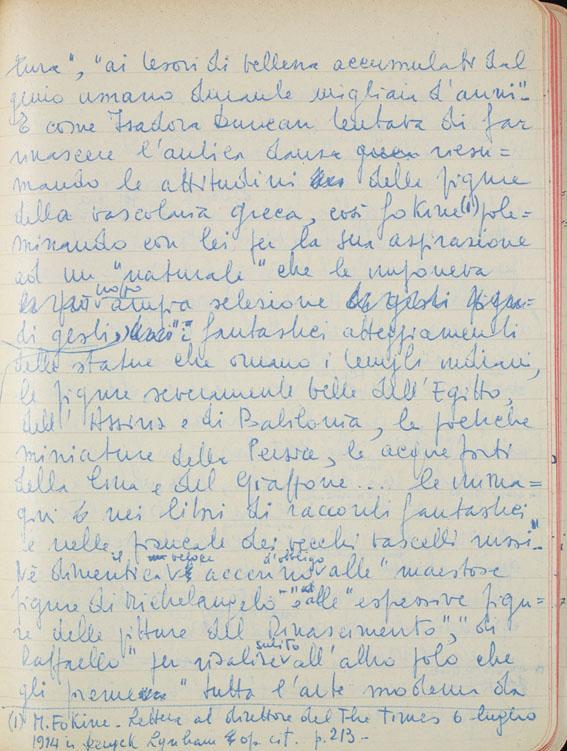 tura", "ai tesori di bellezza accumulati dal
genio umano durante migliaia d'anni".
E come Isadora Duncan tentava di far
rinascere l'antica danza greca riesu=
mando le attitudini delle figure
della vascolaria greca, così Fokine(1) pole=
mizzando con lei per la sua aspirazione
ad un "naturale" che le imponeva
troppo ampia selezione
di gesti, i fantastici atteggiamenti
delle statue che ornano i templi indiani,
le figure severamente belle dell'Egitto,
dell'Assiria e di Babilonia, le poetiche
miniature della Persia, le acque forti
della Cina e del Giappone... le imma=
gini nei libri di racconti fantastici
e nelle facciate dei vecchi vascelli russi".
Nè dimentica il veloce accenno d'obbligo alle "maestose
figure di Michelangelo" "alle "espressive figu=
re delle pitture del Rinascimento", "di
Raffaello" per risalire subito all'altro polo che
gli preme "tutta l'arte moderna da
(1) M. Fokine - Lettera al direttore del The Times 6 luglio
1914 in Lynham op. cit. p. 213 -